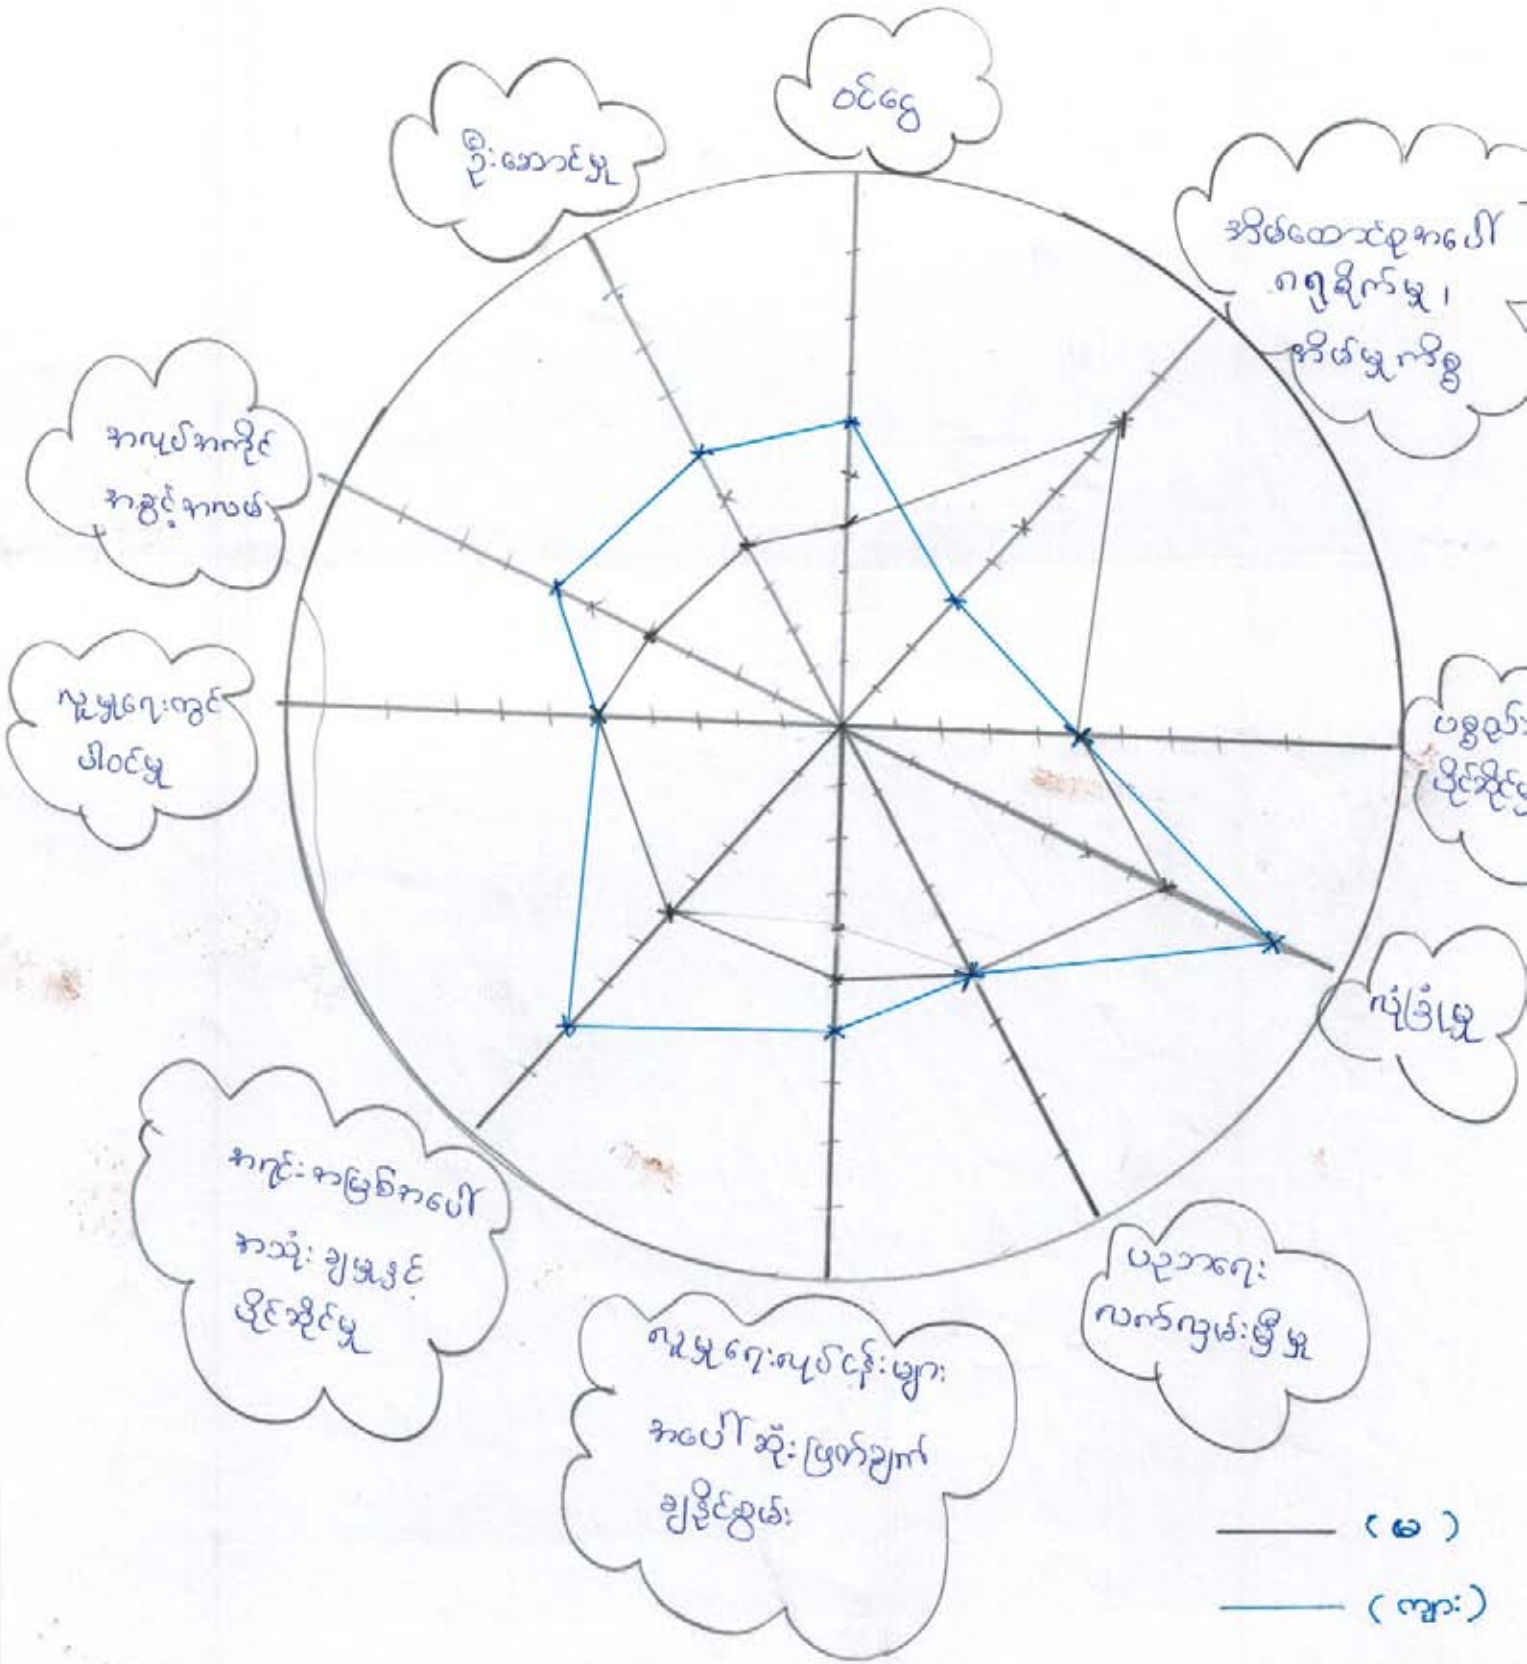 ဝင်ငွေ
ဦးဆောင်မှု
အိမ်ထောင်စုအပေါ်
ဂရုစိုက်မှု ၊
အိမ်မှုကိစ္စ
အလုပ်အကိုင်
အခွင့်အလမ်း
လူမှုရေးတွင်
ပါဝင်မှု
ပစ္စည်း
ပိုင်ဆိုင်မှု
လုံခြုံမှု
အရင်းအမြစ်အပေါ်
အသုံးချမှုနှင့်
ပိုင်ဆိုင်မှု
ပညာရေး
လက်လှမ်းမှီမှု
လူမှုရေးလုပ်ငန်းများ
အပေါ်ဆုံးဖြတ်ချက်
ချနိုင်စွမ်း
( မ )
( ကျား )